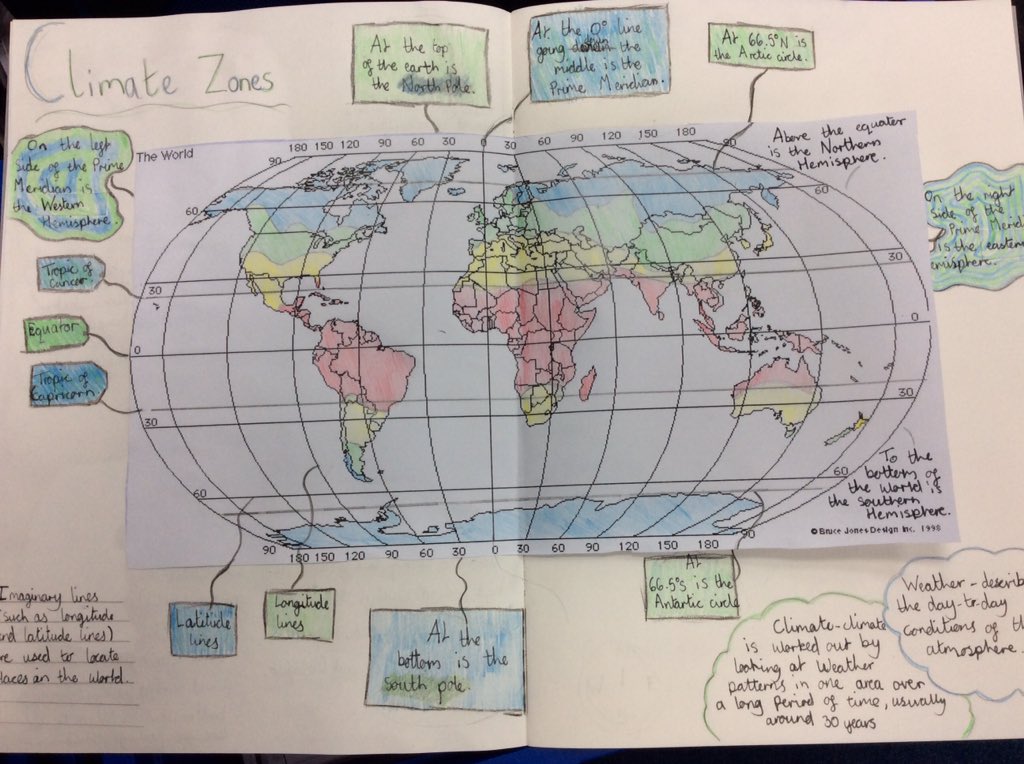 Climate Zones
At the top
of the earth is
the North Pole.
At the 0° line
going down the
middle is the
Prime Meridian.
At 66.5°N is
the Arctic circle.
On the left
side of the Prime
Meridian is
the Western
Hemisphere.
The World
Above the equater
is the Northern
Hemisphere.
On the right
side of the
Prime
is the eastern
Tropic of
Cancer
Equator
Tropic of
Capricorn
180 150 120 90 60 30 0 30 60 90 120 150 180
90 90
60 60
30 30
0 0
30 30
60 60
90 90
90 180 150 120 90 60 30 0 30 60 90 120 150 180 90
To the
bottom of
the world is
the southern
Hemisphere.
© Bruce Jones Design Inc. 1998
Imaginary lines
(such as longitude
and latitude lines)
are used to locate
places on the world.
Latitude
lines
Longitude
lines
At the
bottom is the
south pole.
At
66.5°S is the
Antartic circle
Climate-climate
is worked out by
looking at Weather
patterns in one area over
a long Period of time, usually
around 30 years
Weather-describ
the day-to-day
conditions of
atmosphere.